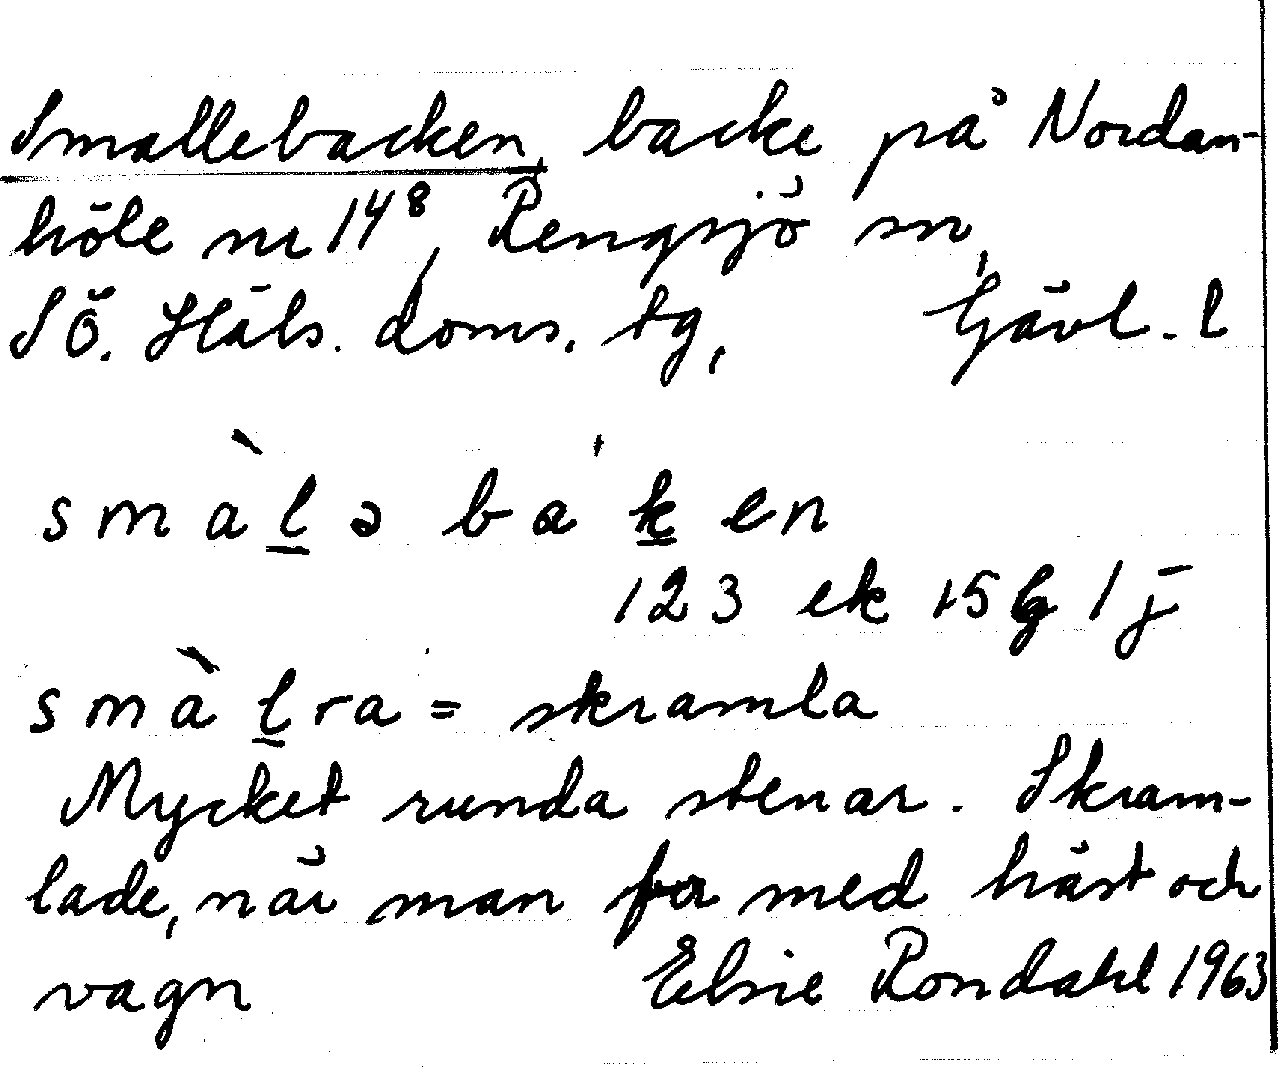 Smallebacken, backe på Nordan-
höle nr 14⁸, Rengsjö sn,
SÖ. Häls. doms. tg, Gävl. l
smàlə ba'ken
123 ek 15 g 1 j
smàlra = skramla
Mycket runda stenar. Skram-
lade, när man for med häst och
vagn Elsie Rondahl 1963